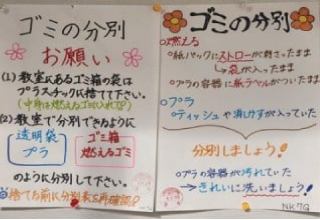 ゴミの分別
お願い
(1)教室にあるゴミ箱の袋は
プラスチックに捨てて下さい。
(中身は燃えるゴミに入れて!)
(2)教室で分別できるように
透明袋
プラ
ゴミ箱
燃えるゴミ
のように分別して下さい。
捨てる前に分別表を再確認!
ゴミの分別
燃える
・紙パックにストローが刺さったまま
→袋が入ったまま
・プラの容器に紙ラベルがついたまま
プラ
・ティッシュや消しカスが入っていた
分別しましょう!
・プラの容器が汚れていた
→きれいに洗いましょう!